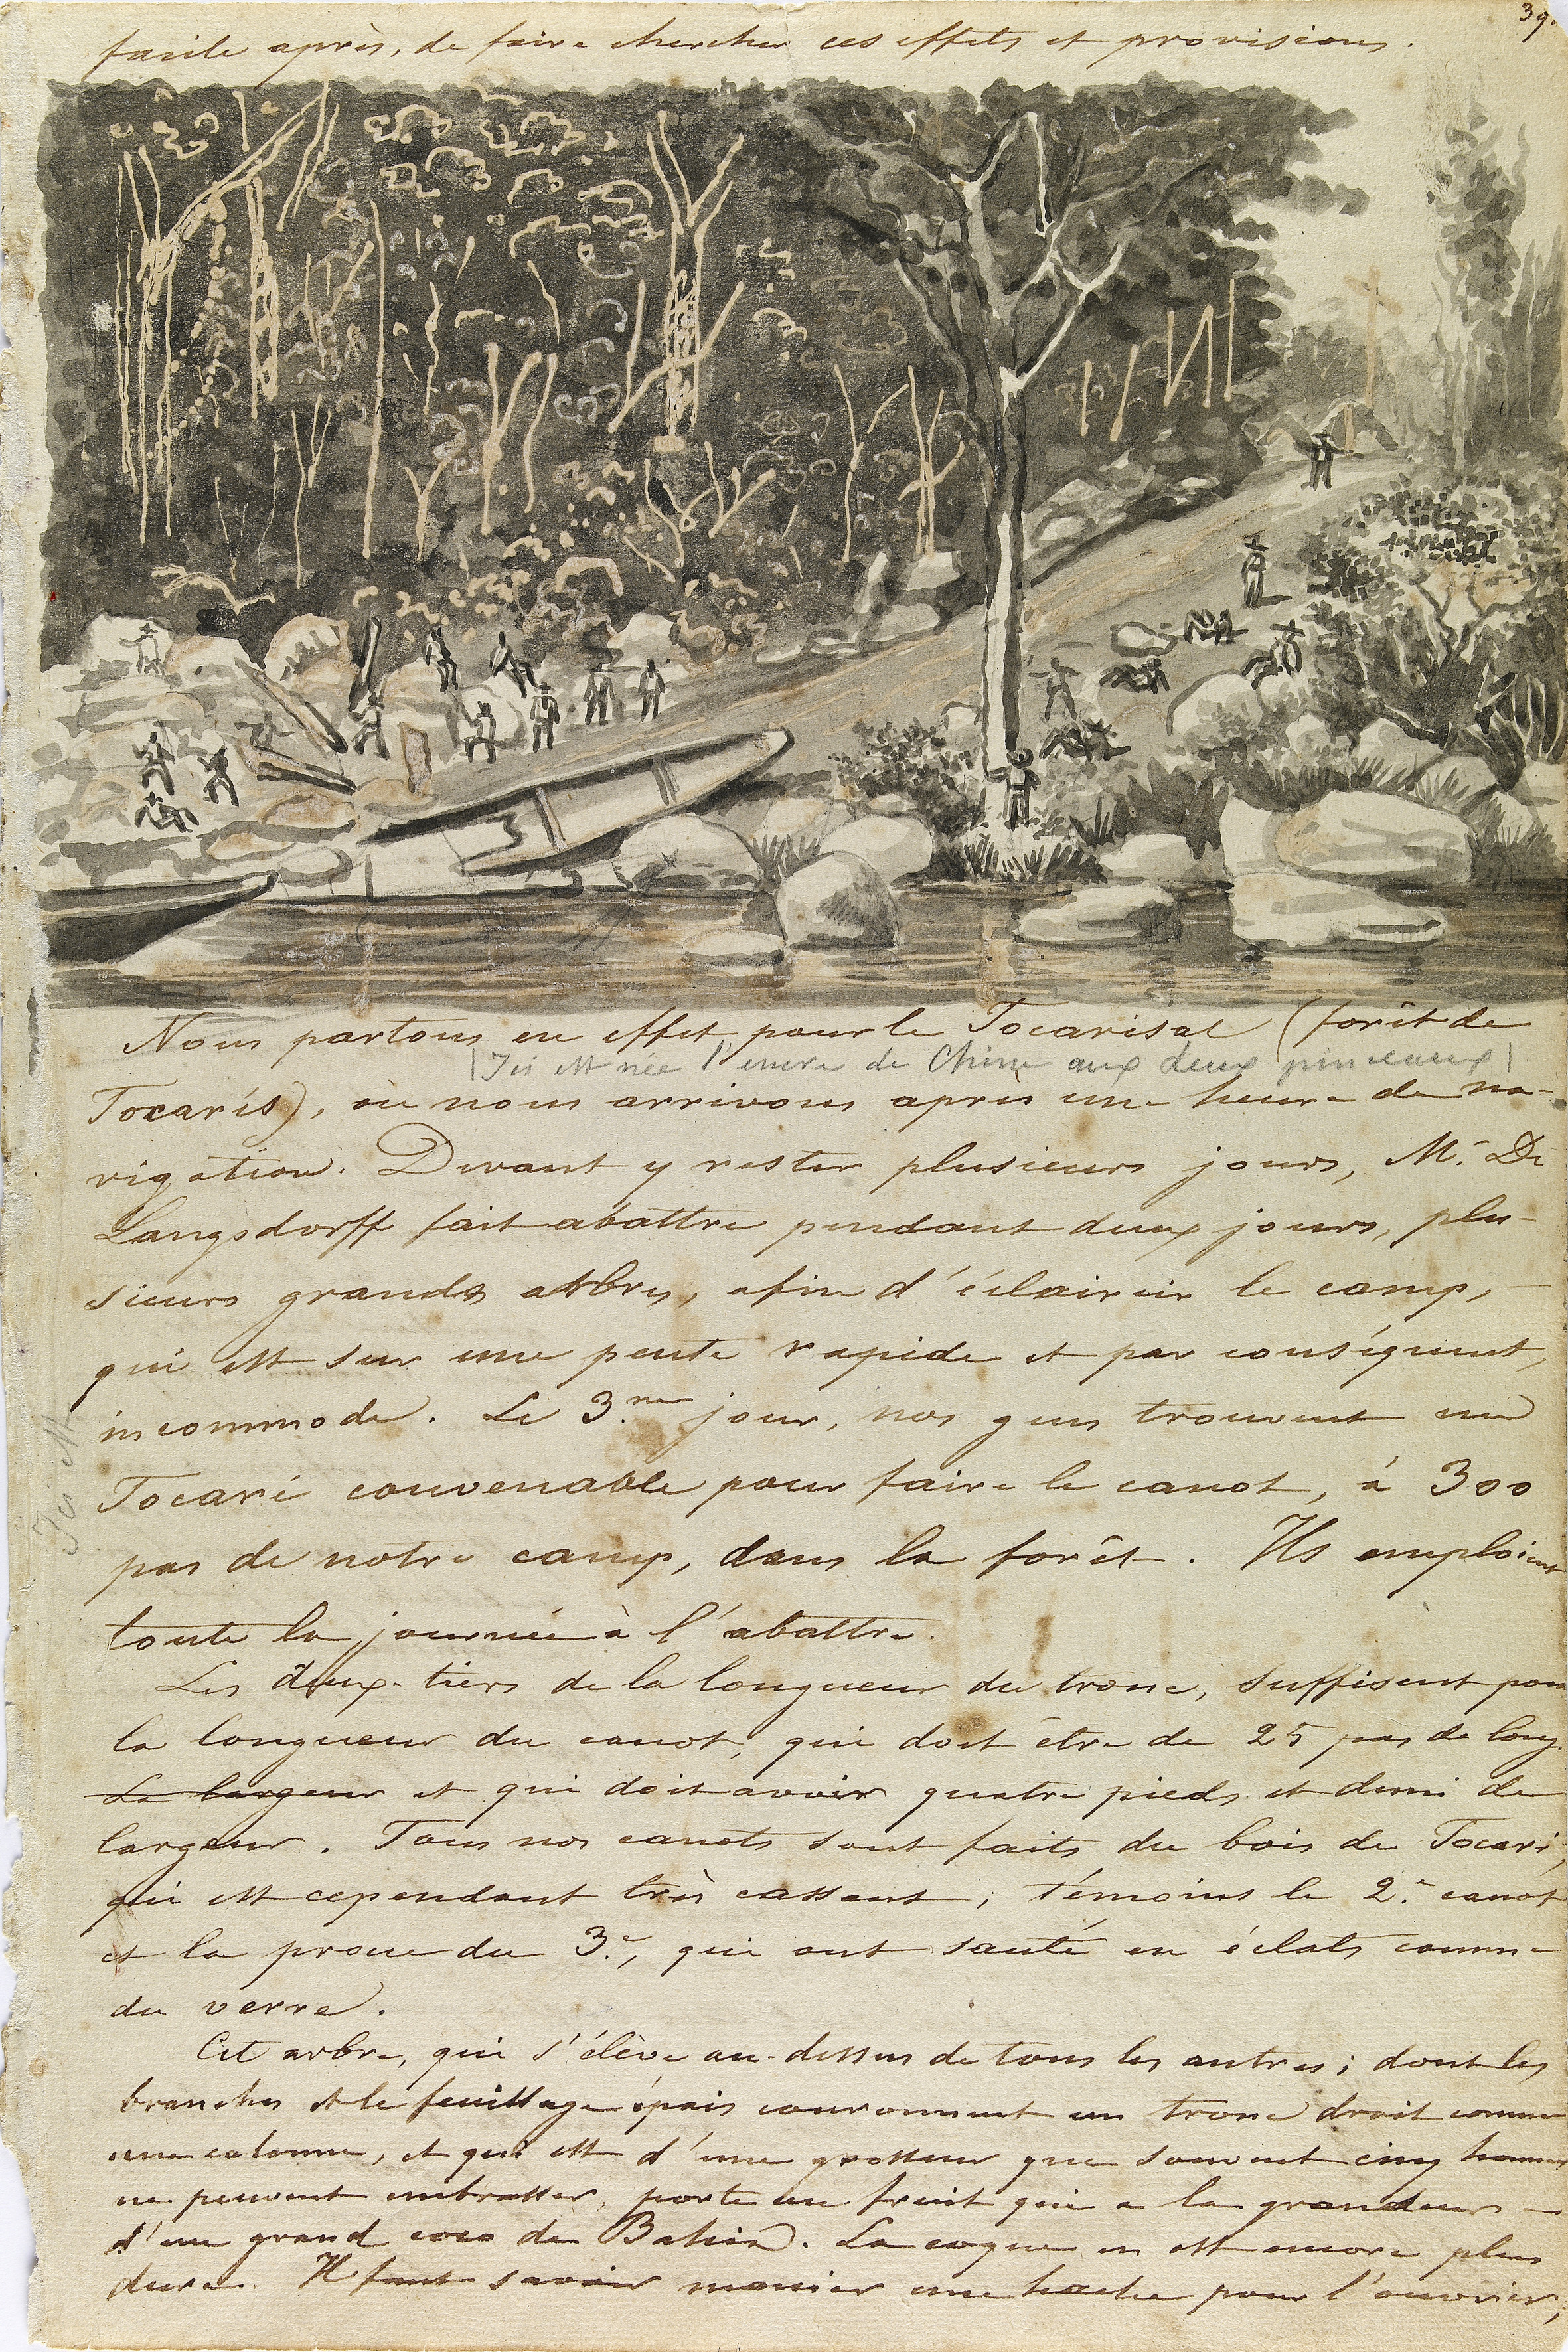 39.
facile après, de faire chercher ces effets et provisions.
Nous partons en effet, pour le Tocarisal (forêt de
(Ici est née l'encre de Chine aux deux pinceaux)
Tocarís), où nous arrivons après une heure de na-
vigation. Devant y rester plusieurs jours, Mr. De
Langsdorff fait abattre pendant deux jours, plu-
sieurs grands arbres, afin d'éclaircir le camp,
qui est sur une pente rapide et par conséquent,
incommode. Le 3.me jour, nos gens trouvent un
Tocari convenable pour faire le canot, à 300
pas de notre camp, dans la forêt. Ils emploient
toute la journée à l'abattre.
Ici est
Les deux-tiers de la longueur du tronc, suffisent pour
la longueur du canot, qui doit être de 25 pas de long.
La largeur et qui doit avoir quatre pieds et demi de
largeur. Tous nos canots sont faits du bois de Tocari,
qui est cependant très cassant; témoins le 2.e canot
et la proue du 3.e, qui ont sauté en éclats comme
du verre.
Cet arbre, qui s'élève au-dessus de tous les autres; dont les
branches et le feuillage épais couronnent un tronc droit comme
une colonne, et qui est d'une grosseur que souvent cinq hommes
ne peuvent embrasser, porte un fruit qui a la grandeur
d'un grand coco de Bahia. La coque en est encore plus
dure. Il faut savoir manier une hache pour l'ouvrir,